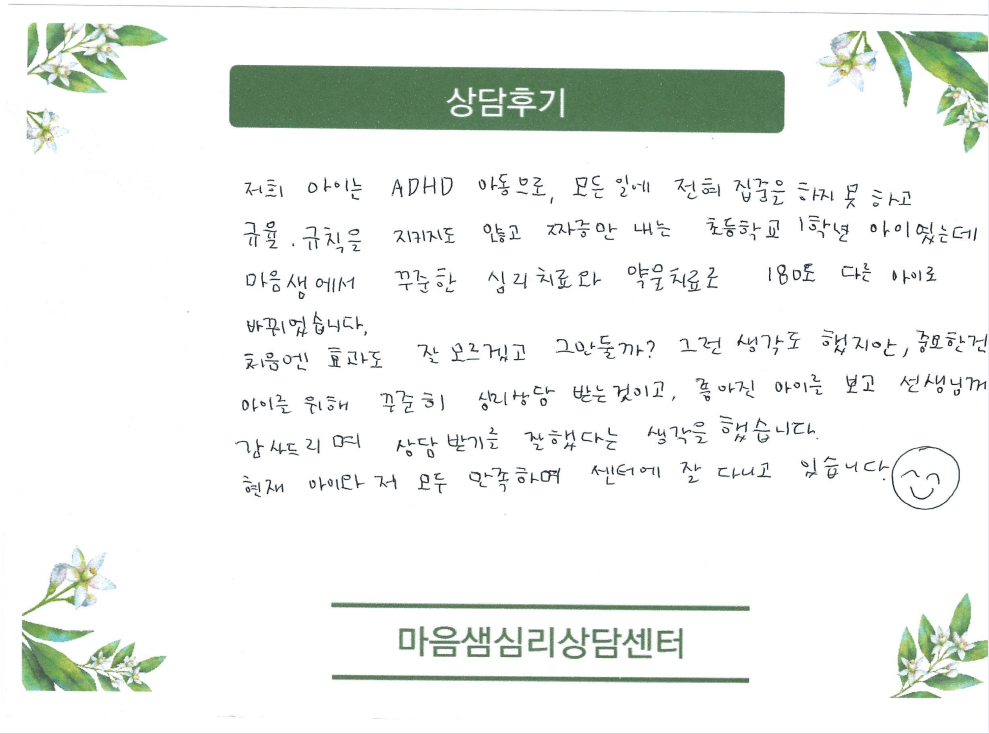 상담후기
저희 아이는 ADHD 아동으로, 모든 일에 전혀 집중을 하지 못 하고
규율.규칙을 지키지도 않고 짜증만 내는 초등학교 1학년 아이였는데
마음샘에서 꾸준한 심리치료와 약물치료로 180도 다른 아이로
바뀌었습니다.
처음엔 효과도 잘 모르겠고 그만둘까? 그런 생각도 했지만, 중요한건
아이를 위해 꾸준히 심리상담 받는것이고, 좋아진 아이를 보고 선생님께
감사드리며 상담받기를 잘했다는 생각을 했습니다.
현재 아이와 저 모두 만족하며 센터에 잘 다니고 있습니다.
마음샘심리상담센터